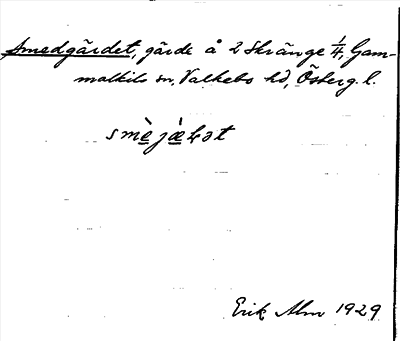 Smedgärdet, gärde å 2 Skränge 1/4, Gam-
malkils sn, Valkebo hd, Österg. l.
smè̱jæ̱̀ɽət
Erik Alm 1929